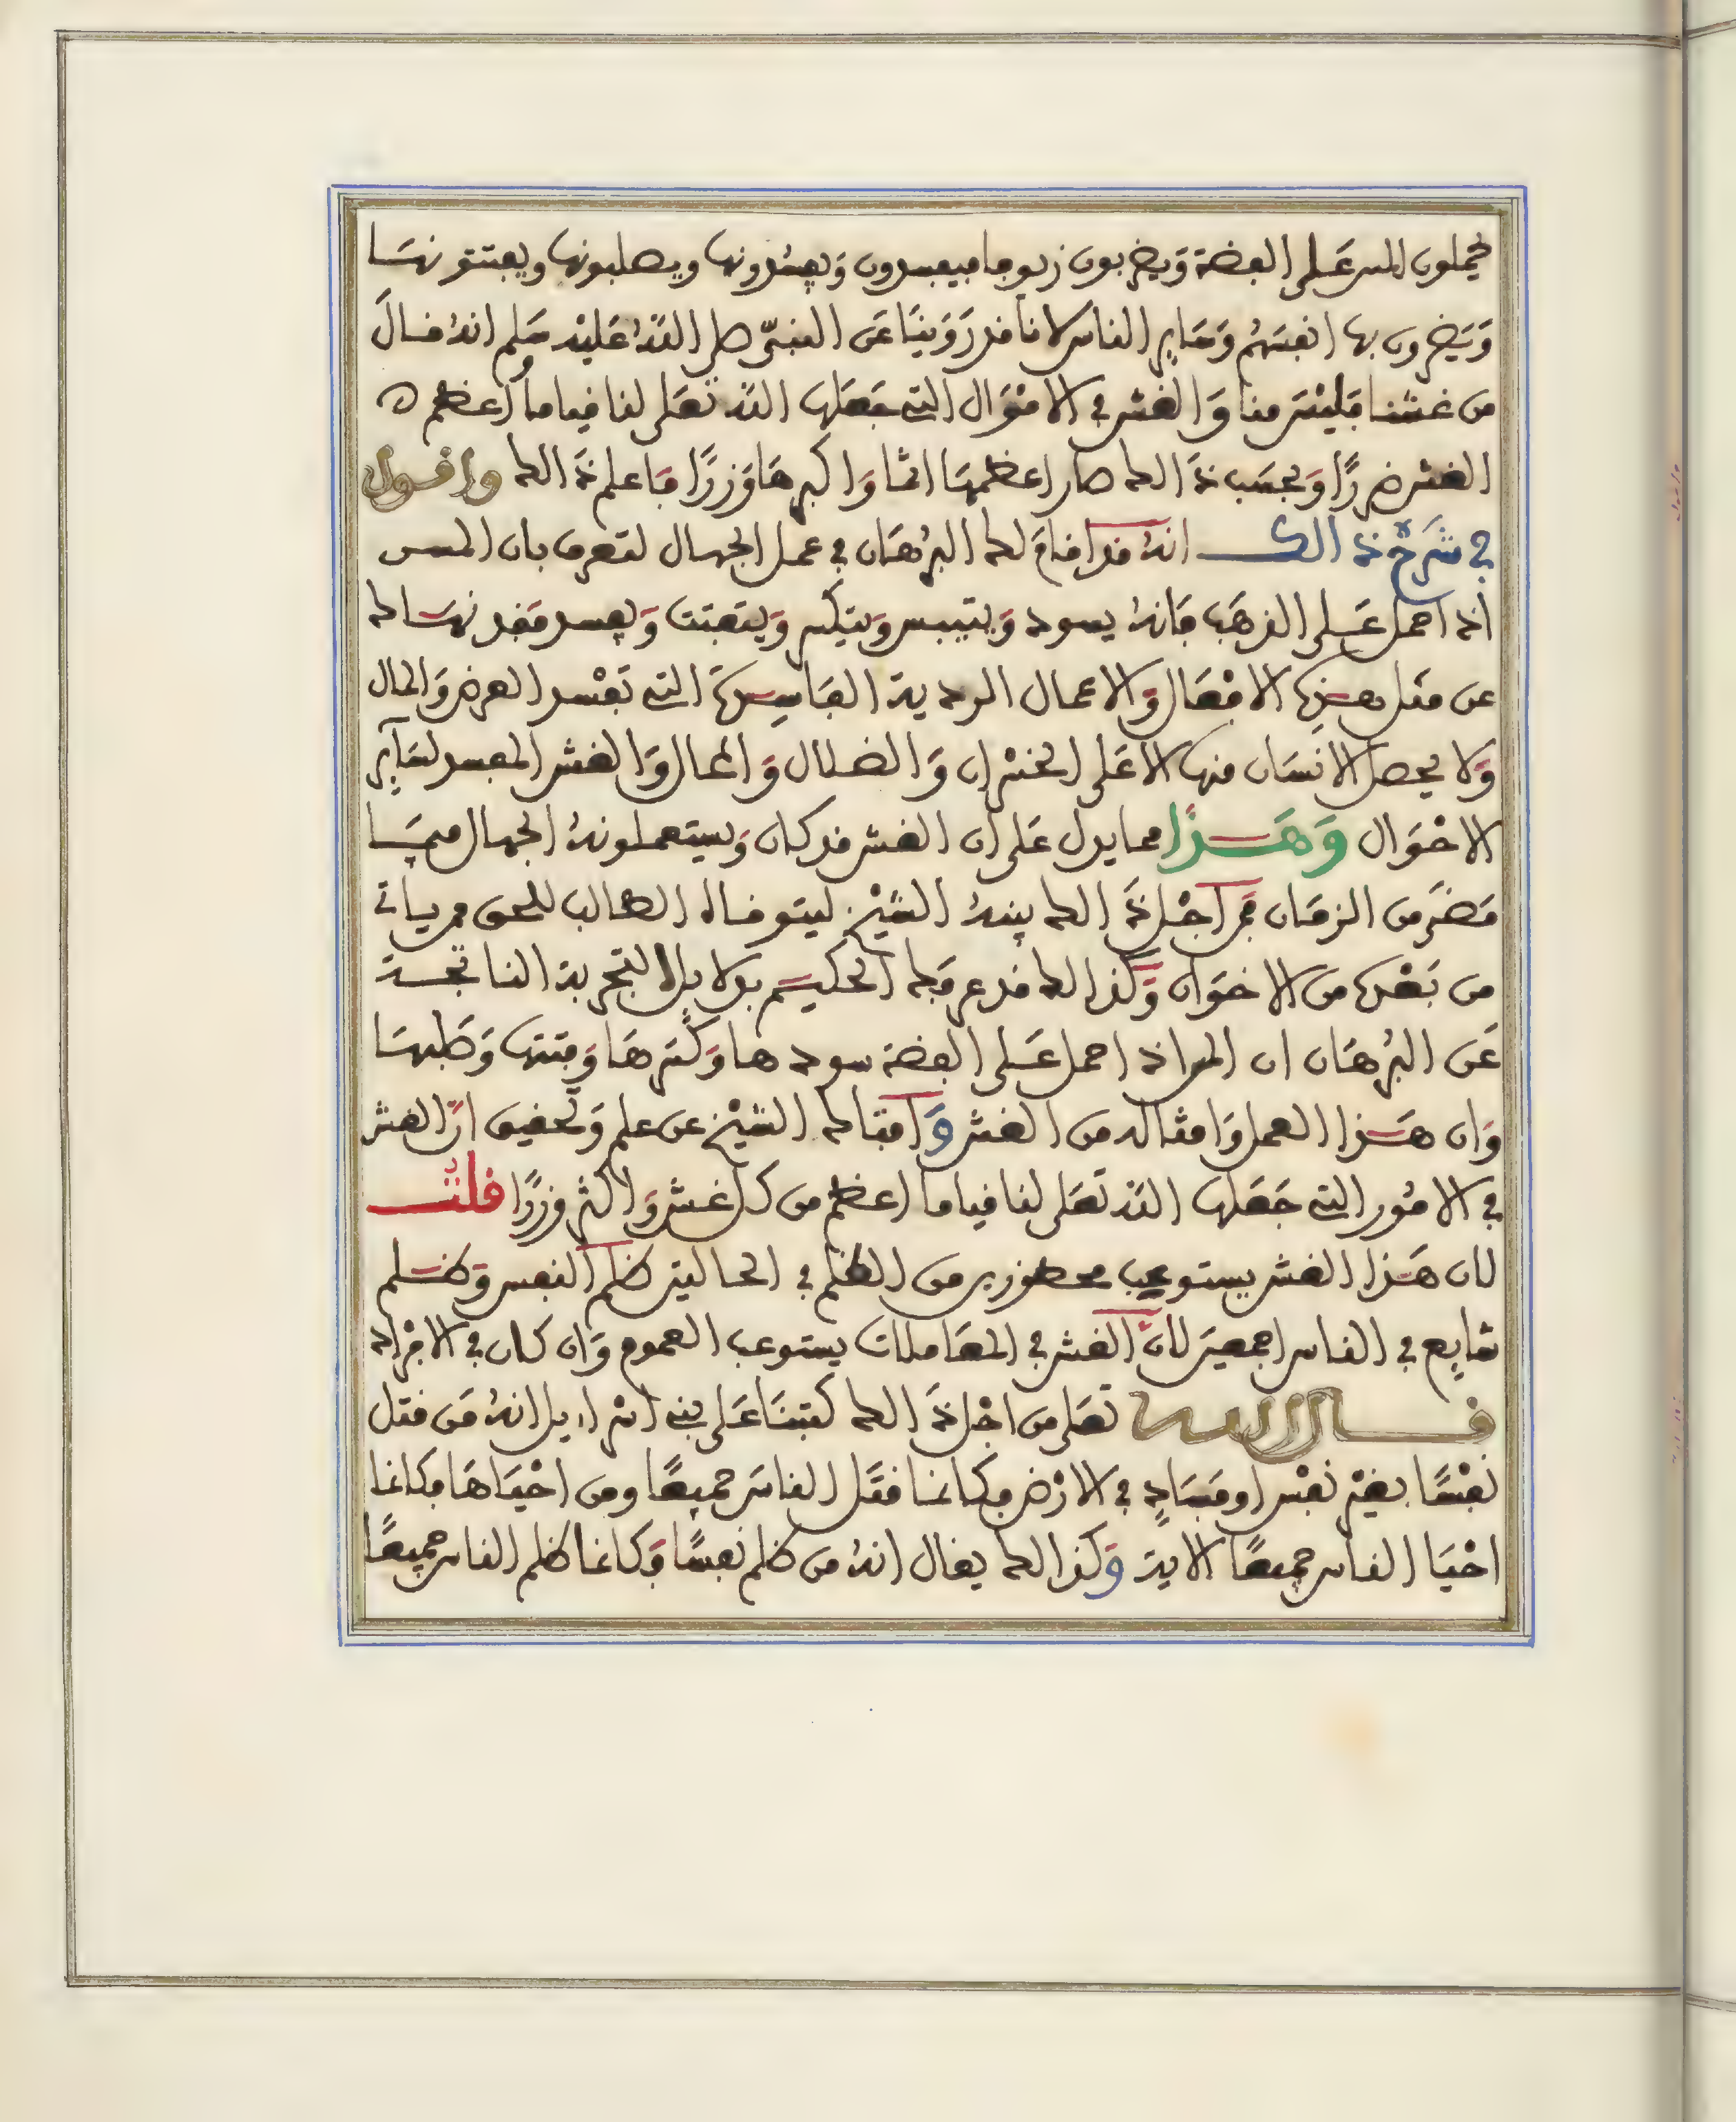 يحملون المس على الفضة ويضربون زيوفا فيفسدون ويفسدونها ويصلبونها ويفتتونها
ويضرون بها انفسهم وساير الناس لانا قد روينا عن النبي صلى الله عليه وسلم انه قال
من غشنا فليس منا والغش في الاموال التي جعلها الله تعلى لنا قياما اعظم
الغش ضررا وبحسب ذالك صار اعظمها اثما واكبرها وزرا فاعلم ذالك واقول
في شرح ذالك انه قد اقام لك البرهان في عمل الجهال لتعرف بان المس
اذا حمل على الذهب فانه يسود ويتيبس ويتكسر ويتفتت ويفسد فقد نهاك
عن مثل هذه الافعال والاعمال الردية الفاسدة التي تفسد العرض والمال
ولا يحصل الانسان منها الا على الخسران والضلال والمحال والغش المفسد لساير
الاحوال وهذا مما يدل على ان الغش قد كان ويستعملونه الجهال فيما
مضى من الزمان فمن اجل ذالك بينه الشيخ ليتوقاه الطالب للحق ممن ياتي
من بعده من الاخوان وكذالك قد عرفك الحكيم بدلايل التجربة الناتجة
عن البرهان ان المس اذا حمل على الفضة سودها وكسرها وفتتها وصلبها
وان هذا العمل وامثاله من الغش وافتاك الشيخ عن علم وتحقيق ان الغش
في الامور التي جعلها الله تعلى لنا قياما اعظم من كل غش واكثر وزرا قلت
لان هذا الغش يستوعب محظورين من الظلم في الحالين ظلم النفس وظلم
شايع في الناس اجمعين لان الغش في المعاملات يستوعب العموم وان كان في الافراد
قال الله تعلى من اجل ذالك كتبنا على بني اسراءيل انه من قتل
نفسا بغير نفس او فساد في الارض فكانما قتل الناس جميعا ومن احياها فكانما
احيا الناس جميعا الاية وكذالك يقال انه من ظلم نفسا فكانما ظلم الناس جميعا